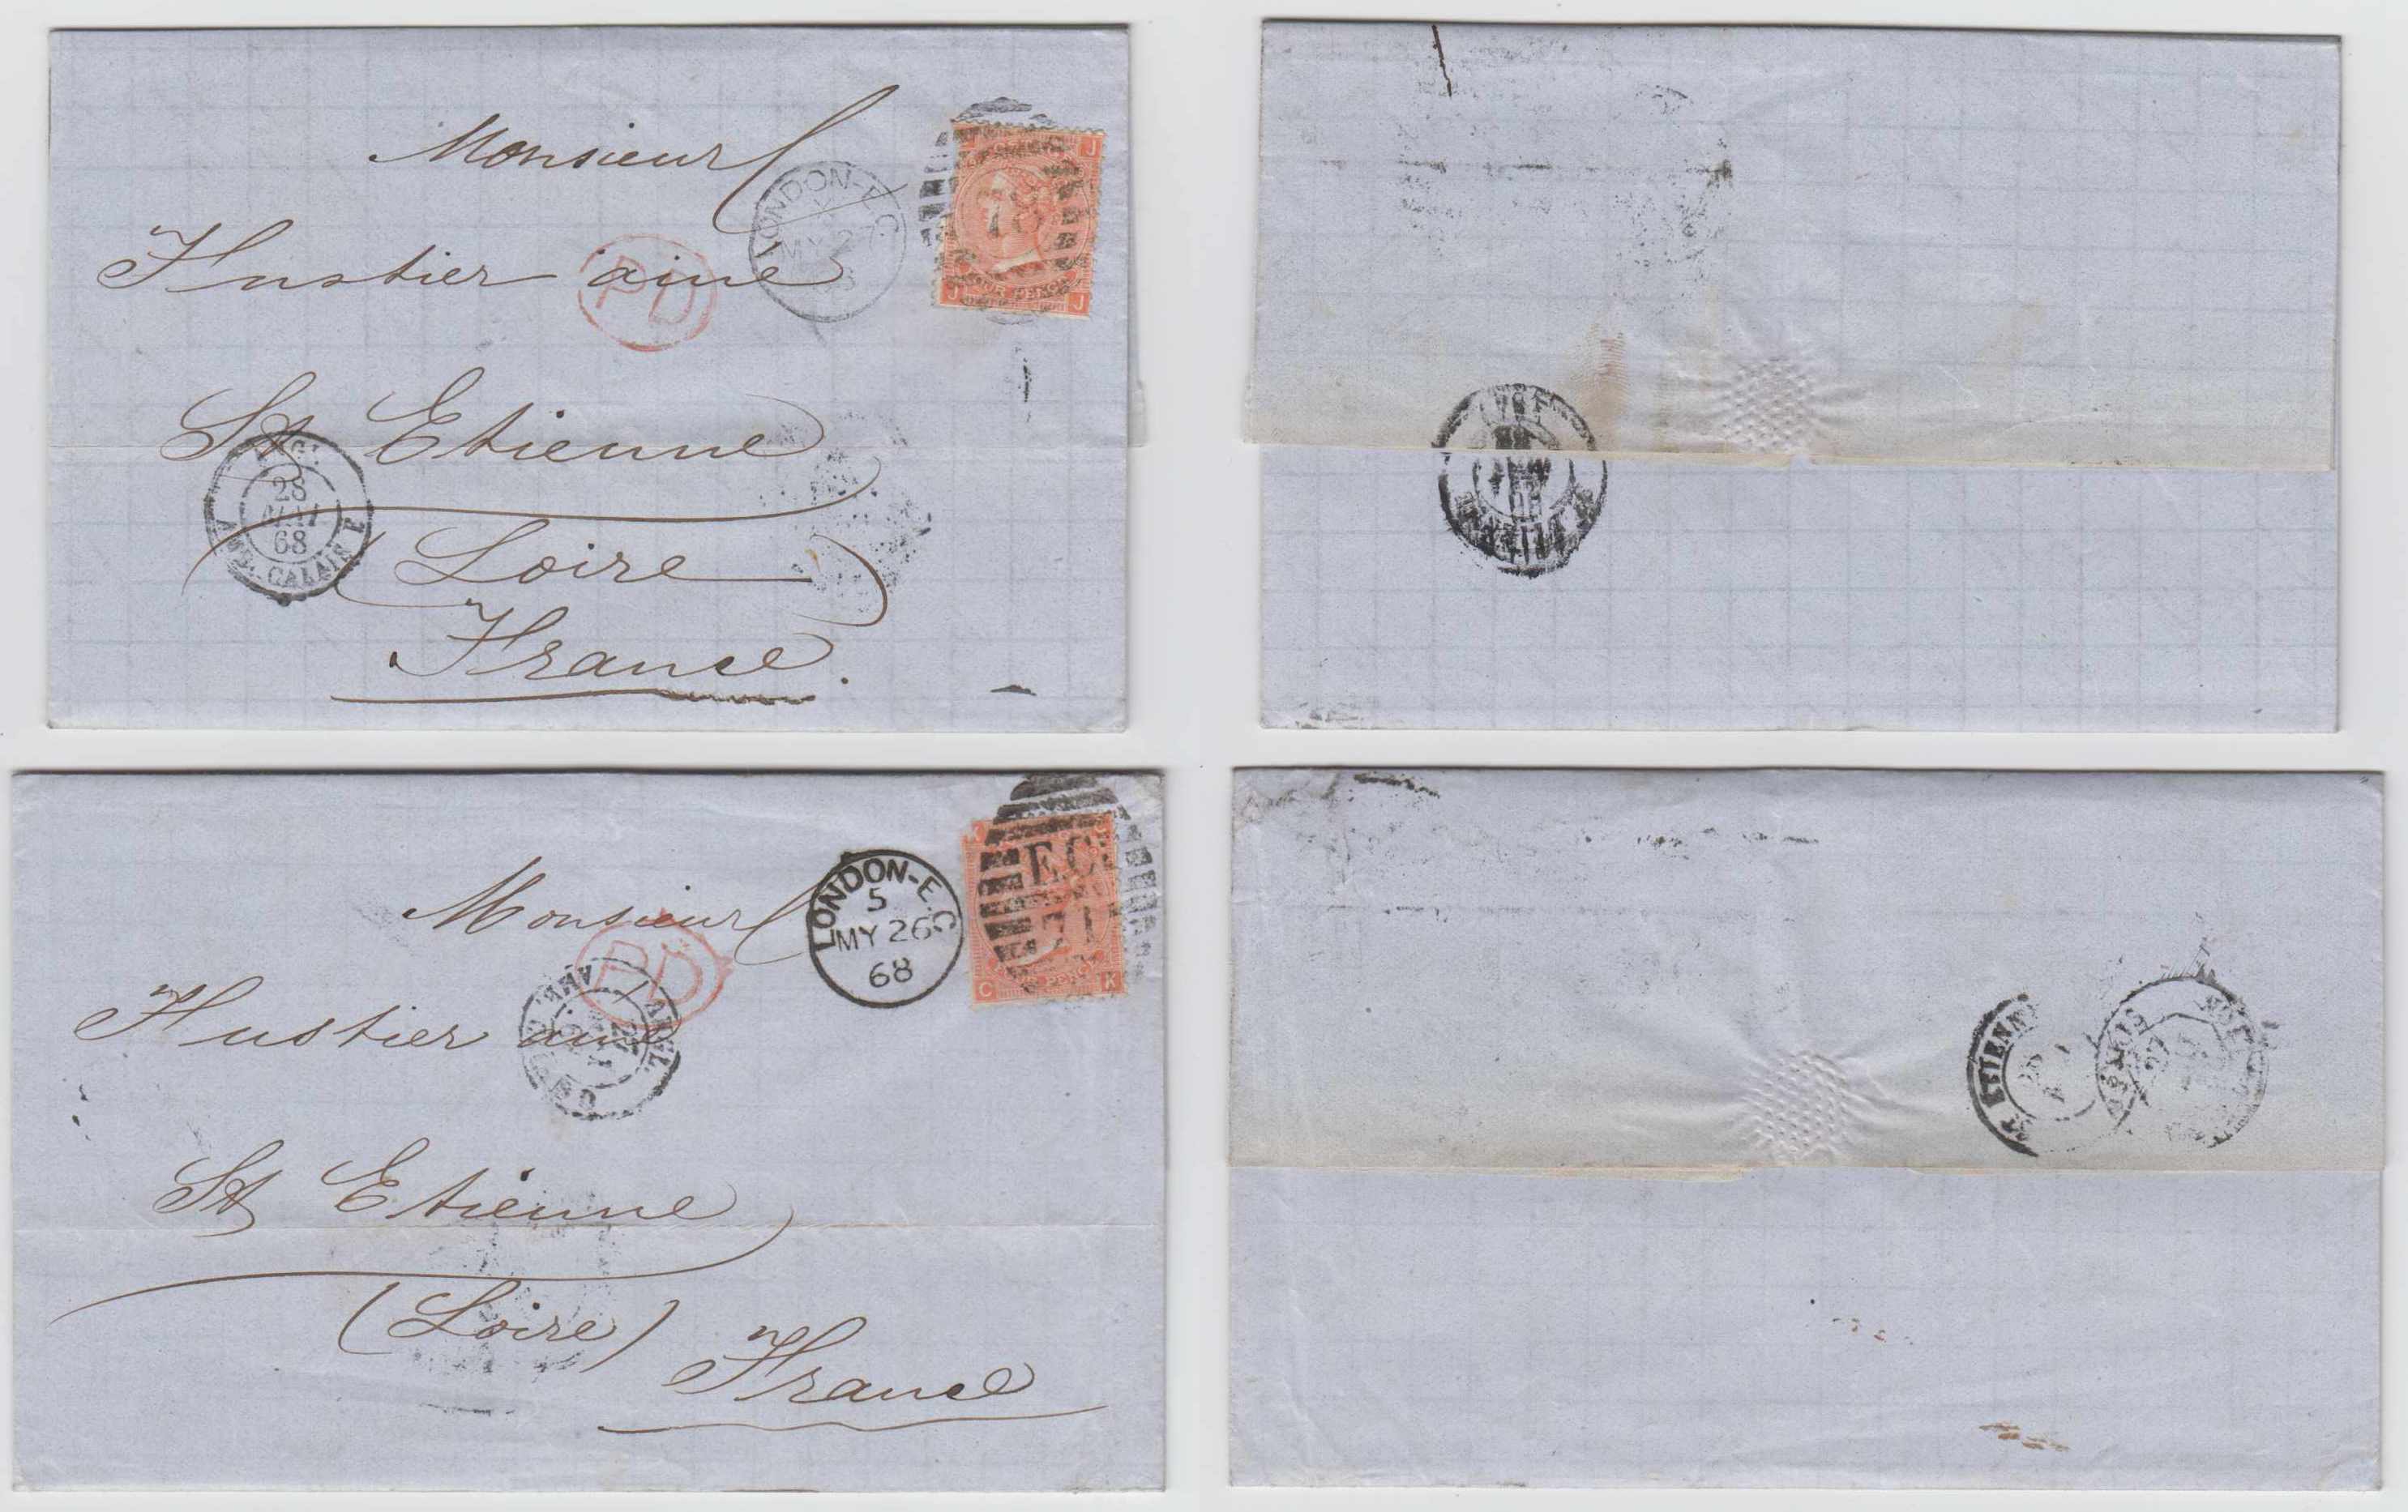 Monsieur
Hustier ainé
St Etienne
(Loire)
France.
PD
LONDON-E.C
MY 27
68
78
J
J J
FOUR PENCE
ANGL.
28
MAI
68
AMB. CALAIS E
Monsieur
Hustier ainé
St Etienne
(Loire)
France
PD
LONDON-E.C
5
MY 26
68
E.C
71
K C
C K
ANGL.
ST ETIENNE
28
PARIS
27